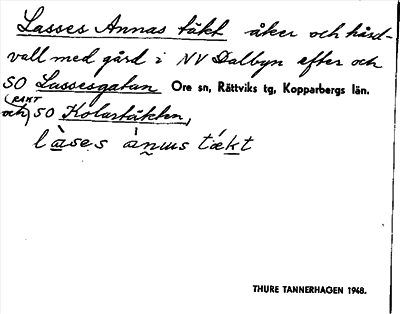 Lasses Annas täkt åker och hård-
vall med gård i NV Dalbyn efter och
SO Lassesgatan Ore sn, Rättviks tg, Kopparbergs län.
(RAKT
och) SO Kolartäkten,
THURE TANNERHAGEN 1948.